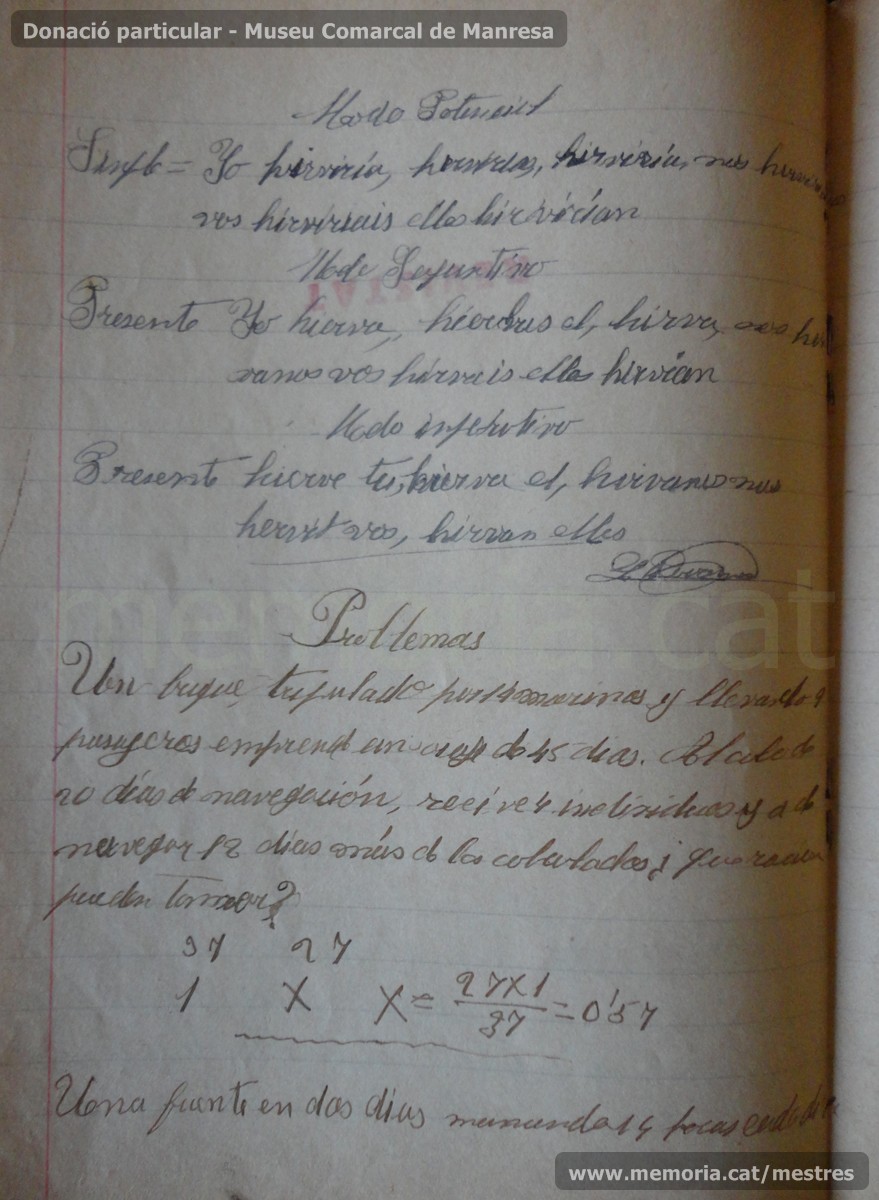 Donació particular - Museu Comarcal de Manresa
Modo Potencial
Simple = Yo hirviría, hirvirías, hirviría, nos
vos hirviriais ellos hirvirían
Modo
Presente Yo hierva, hiervas el, hirva, nos
vanos vos hirvais ellos hirvían
Modo
Presente hierve tu, hierva el, hirvanos nos
hervit vos, hirvan ellos
memoria.cat
Problemas
Un buque, tripulado por 14 marinos y llevando 9
pasageros emprend un viaje de 45 dias. Al cabo de
20 días de navegación, recive 4 individuos y a de
navegar 12 dias más de los calculados ¿ que
pueden tomar?
37 27
1 X X = 27X1 = 0'57
37
Una fuente en dos dias manando 14 cada
www.memoria.cat/mestres